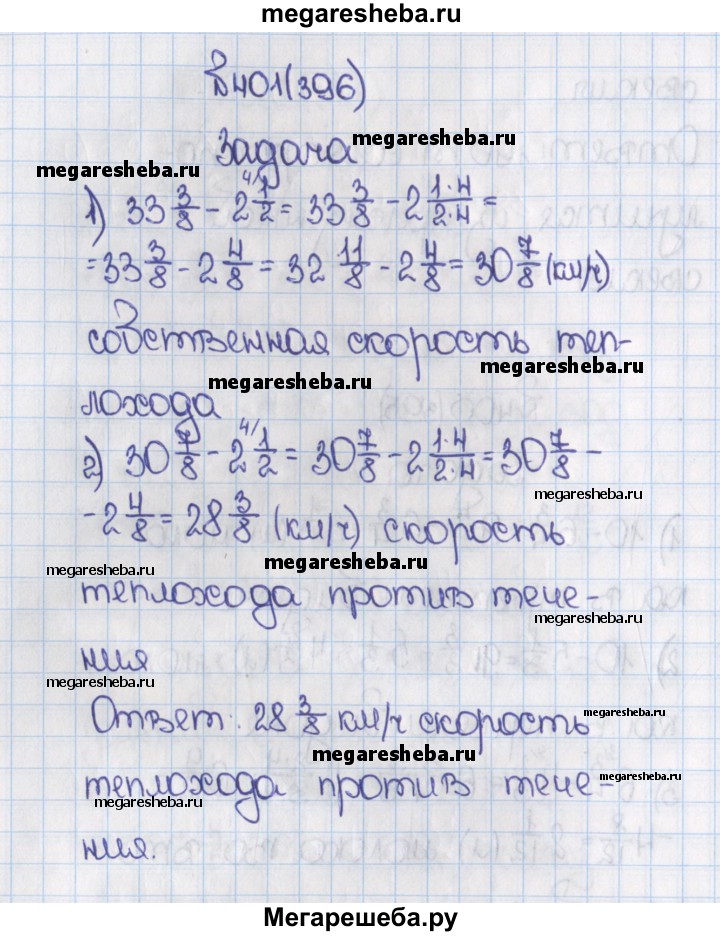 megaresheba.ru
№401(396)
Задача
megaresheba.ru
megaresheba.ru
1) 33 3/8 - 2 4/ 1/2 = 33 3/8 - 2 1·4/2·4 =
= 33 3/8 - 2 4/8 = 32 11/8 - 2 4/8 = 30 7/8 (км/ч)
собственная скорость теп-
megaresheba.ru
megaresheba.ru
лохода
2) 30 7/8 - 2 4/ 1/2 = 30 7/8 - 2 1·4/2·4 = 30 7/8 -
megaresheba.ru
- 2 4/8 = 28 3/8 (км/ч) скорость
megaresheba.ru
megaresheba.ru
теплохода против тече-
megaresheba.ru
ния
megaresheba.ru
Ответ: 28 3/8 км/ч скорость
megaresheba.ru
megaresheba.ru
теплохода против тече-
megaresheba.ru
megaresheba.ru
ния.
Мегарешеба.ру